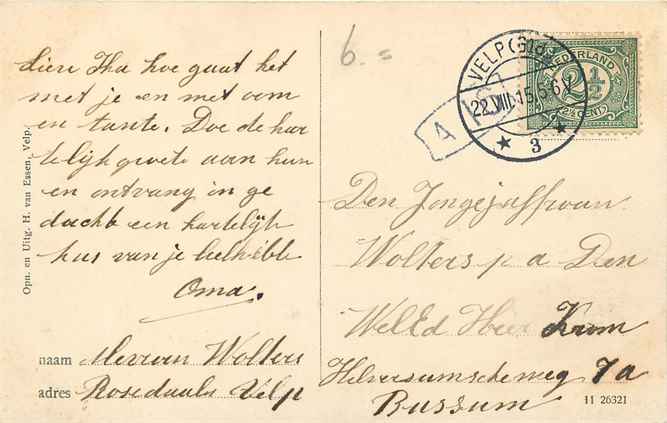 6.=
Lieve Ika hoe gaat het
met je en met oom
en tante. Doe de har
telijk groete aan hun
en ontvang in ge
dachte een hartelijk
kus van je liefhebbe
Oma.
naam Mevrouw Wolters
adres Rosedaal Velp
Opn. en Uitg. H. van Essen, Velp.
VELP (Gld)
22.VIII.15.5-6V
3
NEDERLAND
2½
(2½ CENT)
A
Den Jongejuffrouw
Wolters p a Den
WelEd Heer Krom
Hilversumscheweg 7a
Bussum
11 26321